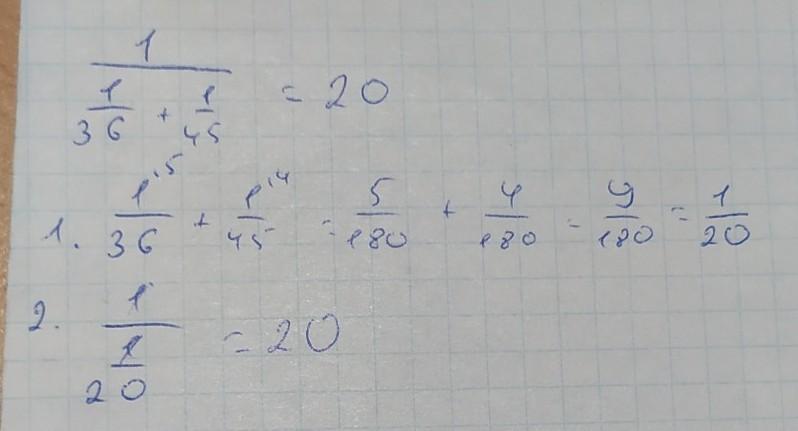 1/(1/36 + 1/45) = 20
1. 1·5/36 + 1·4/45 = 5/180 + 4/180 = 9/180 = 1/20
2. 1/(1/20) = 20